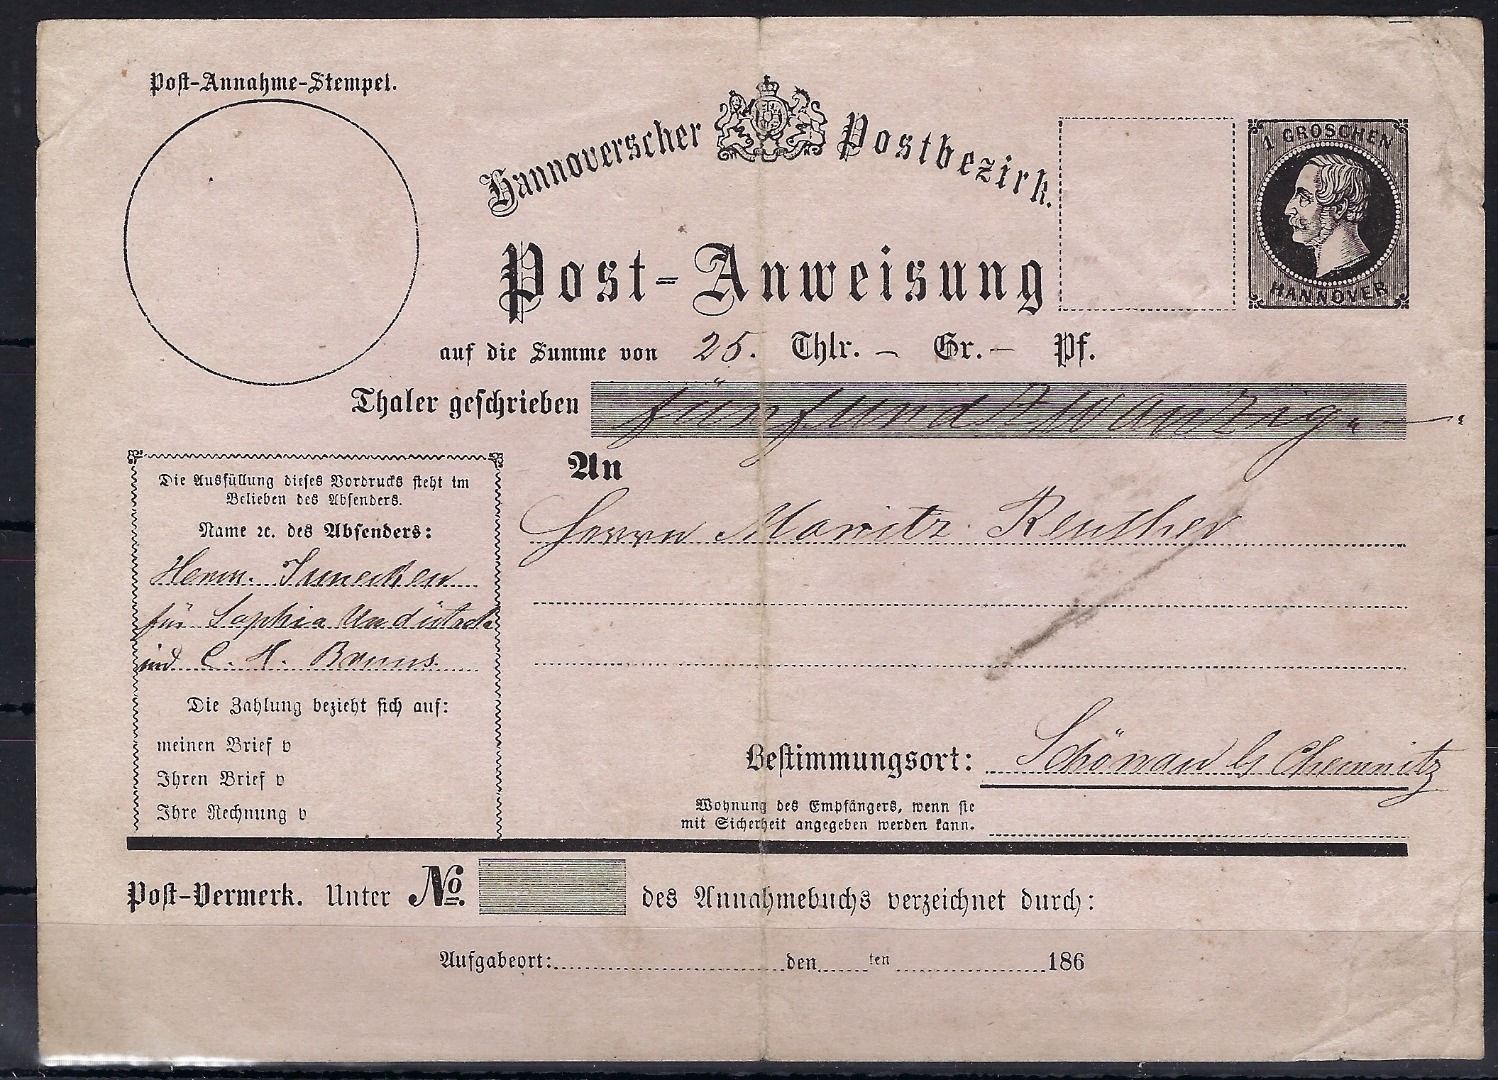 Post-Annahme-Stempel.
Hannoverscher Postbezirk.
1 GROSCHEN
HANNOVER
Post-Anweisung
auf die Summe von 25. Thlr. – Gr. – Pf.
Thaler geschrieben fünfundzwanzig
An
Herrn Moritz Reuther
Die Ausfüllung dieses Vordrucks steht im
Belieben des Absenders.
Name ꝛc. des Absenders:
Herm.
für Sophia
und C. H. Bruns
Die Zahlung bezieht sich auf:
meinen Brief v
Ihren Brief v
Ihre Rechnung v
Bestimmungsort: Schönau b/ Chemnitz
Wohnung des Empfängers, wenn sie
mit Sicherheit angegeben werden kann.
Post-Vermerk. Unter No. des Annahmebuchs verzeichnet durch:
Aufgabeort: den ten 186